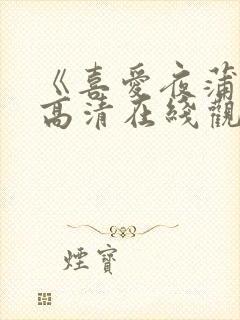 《喜愛夜蒲
高清在綫觀
煙寶